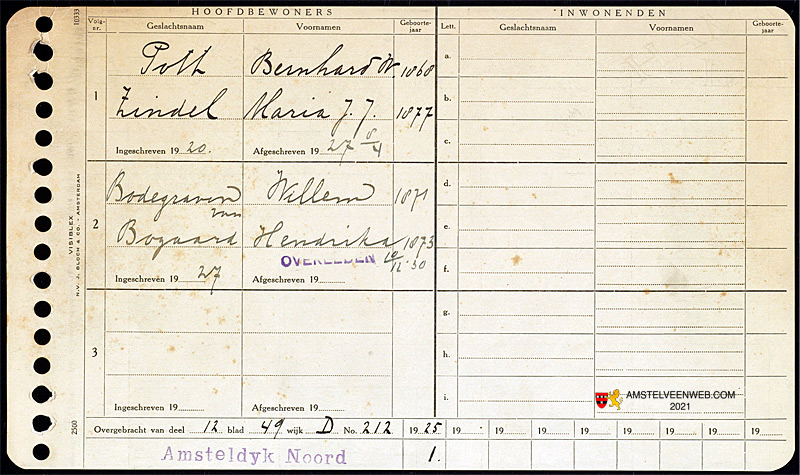 HOOFDBEWONERS
INWONENDEN
10333
Volg-nr.
Geslachtsnaam
Voornamen
Geboorte-jaar
Lett.
Geslachtsnaam
Voornamen
Geboorte-jaar
1
Pott Bernhard W. 1868
Zindel Maria J. J. 1877
Ingeschreven 19 20. Afgeschreven 19 27 8/4
2
Bodegraven van Willem 1871
Bogaard Hendrika 1873
OVERLEDEN 10/12 '30
Ingeschreven 19 27 Afgeschreven 19
3
Ingeschreven 19 Afgeschreven 19
a.
b.
c.
d.
e.
f.
g.
h.
i.
VISIBLEX
N.V. J. BLOCH & CO. - AMSTERDAM
2500
AMSTELVEENWEB.COM
2021
Overgebracht van deel 12 blad 49 wijk D No. 212 1925 19 19 19 19 19 19 19 19
Amsteldyk Noord 1.